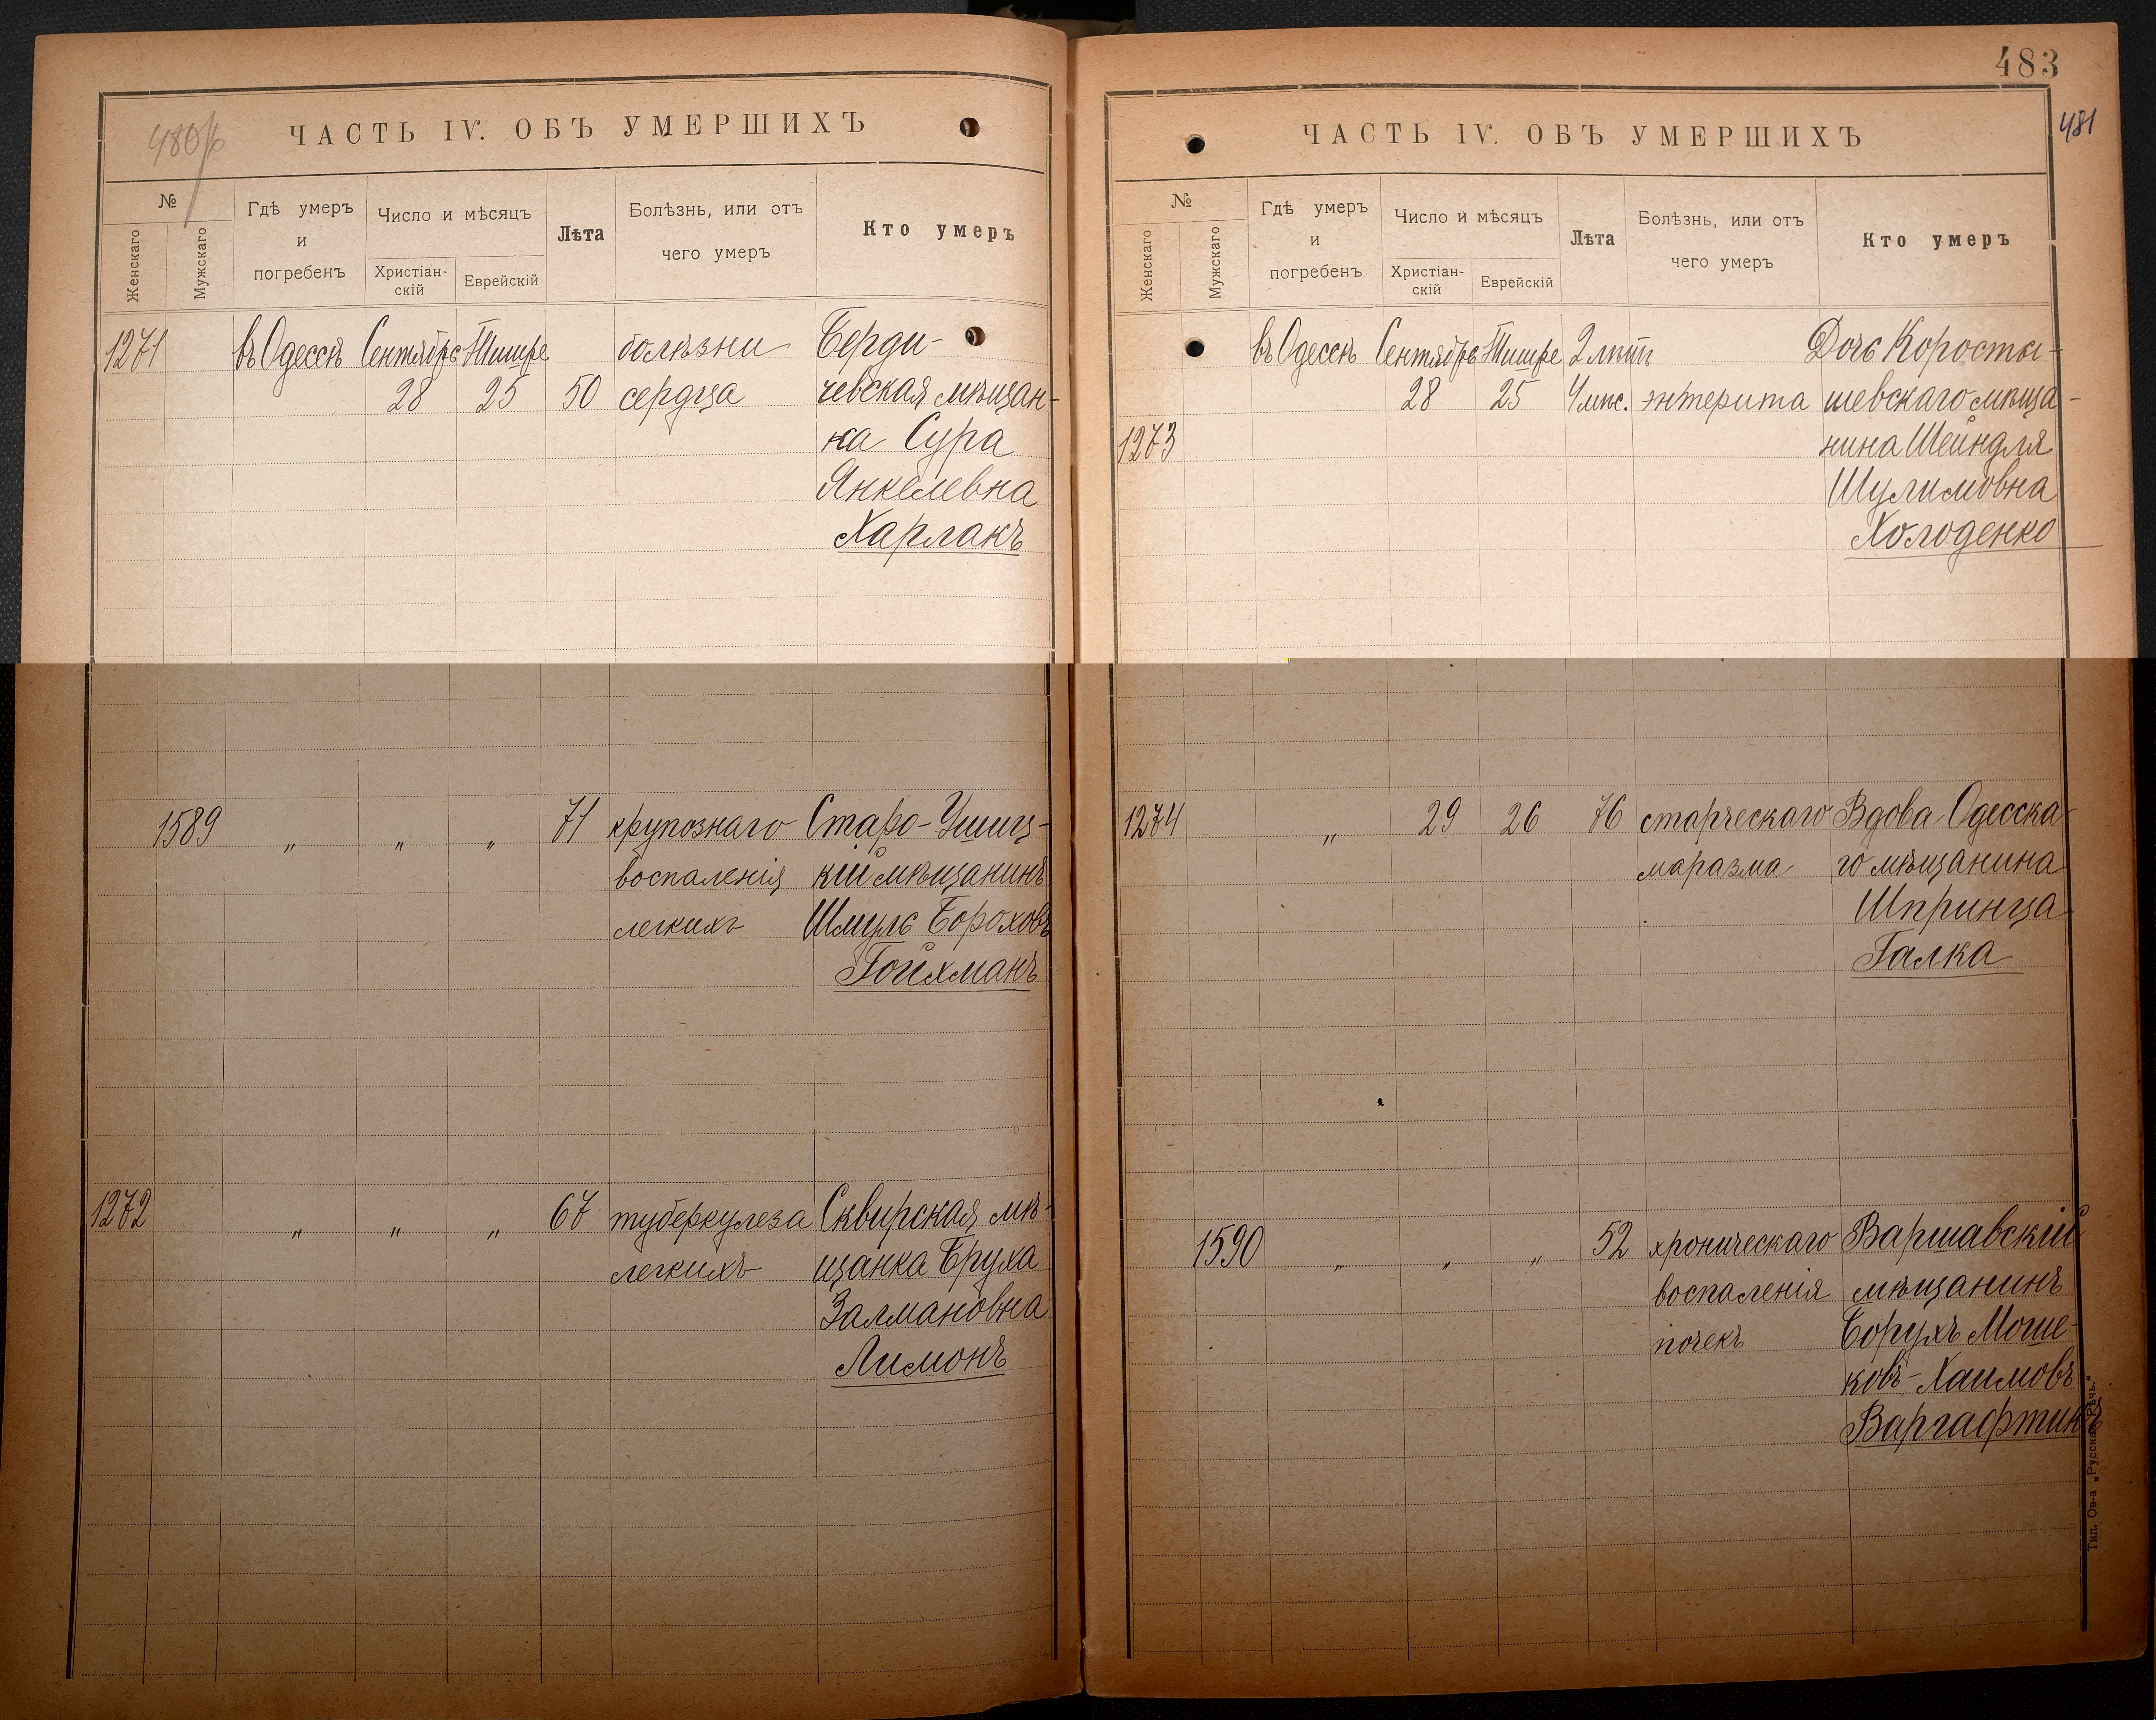 480/б
ЧАСТЬ IV. ОБЪ УМЕРШИХЪ
№
Женскаго
Мужскаго
Гдѣ умеръ
и
погребенъ
Число и мѣсяцъ
Христіан-
скій
Еврейскій
Лѣта
Болѣзнь, или отъ
чего умеръ
Кто умеръ
1271 въ Одессѣ Сентябрь Тишре болѣзни Берди-
28 25 50 сердца чевская мѣщан-
ка Сура
Янкелевна
Харлакъ
1589 „ „ „ 71 крупознаго Старо-Ушиц-
воспаленія кій мѣщанинъ
легкихъ Шмуль Бороховъ
Гойхманъ
1272 „ „ „ 67 туберкулеза Сквирская мѣ-
легкихъ щанка Бруха
Залмановна
Лимонъ
483
481
ЧАСТЬ IV. ОБЪ УМЕРШИХЪ
№
Женскаго
Мужскаго
Гдѣ умеръ
и
погребенъ
Число и мѣсяцъ
Христіан-
скій
Еврейскій
Лѣта
Болѣзнь, или отъ
чего умеръ
Кто умеръ
въ Одессѣ Сентябрь Тишре 2 лѣтъ Дочь Коросты-
28 25 4 мѣс. энтерита шевскаго мѣща-
1273 нина Шейндля
Шулимовна
Холоденко
1274 „ 29 26 76 старческаго Вдова Одесска-
маразма го мѣщанина
Шпринца
Галка
1590 „ „ „ 52 хроническаго Варшавскій
воспаленія мѣщанинъ
почекъ Борухъ Моше-
ковъ-Хаимовъ
Варгафтикъ
Тип. Ов-а „Русская Рѣчь.“